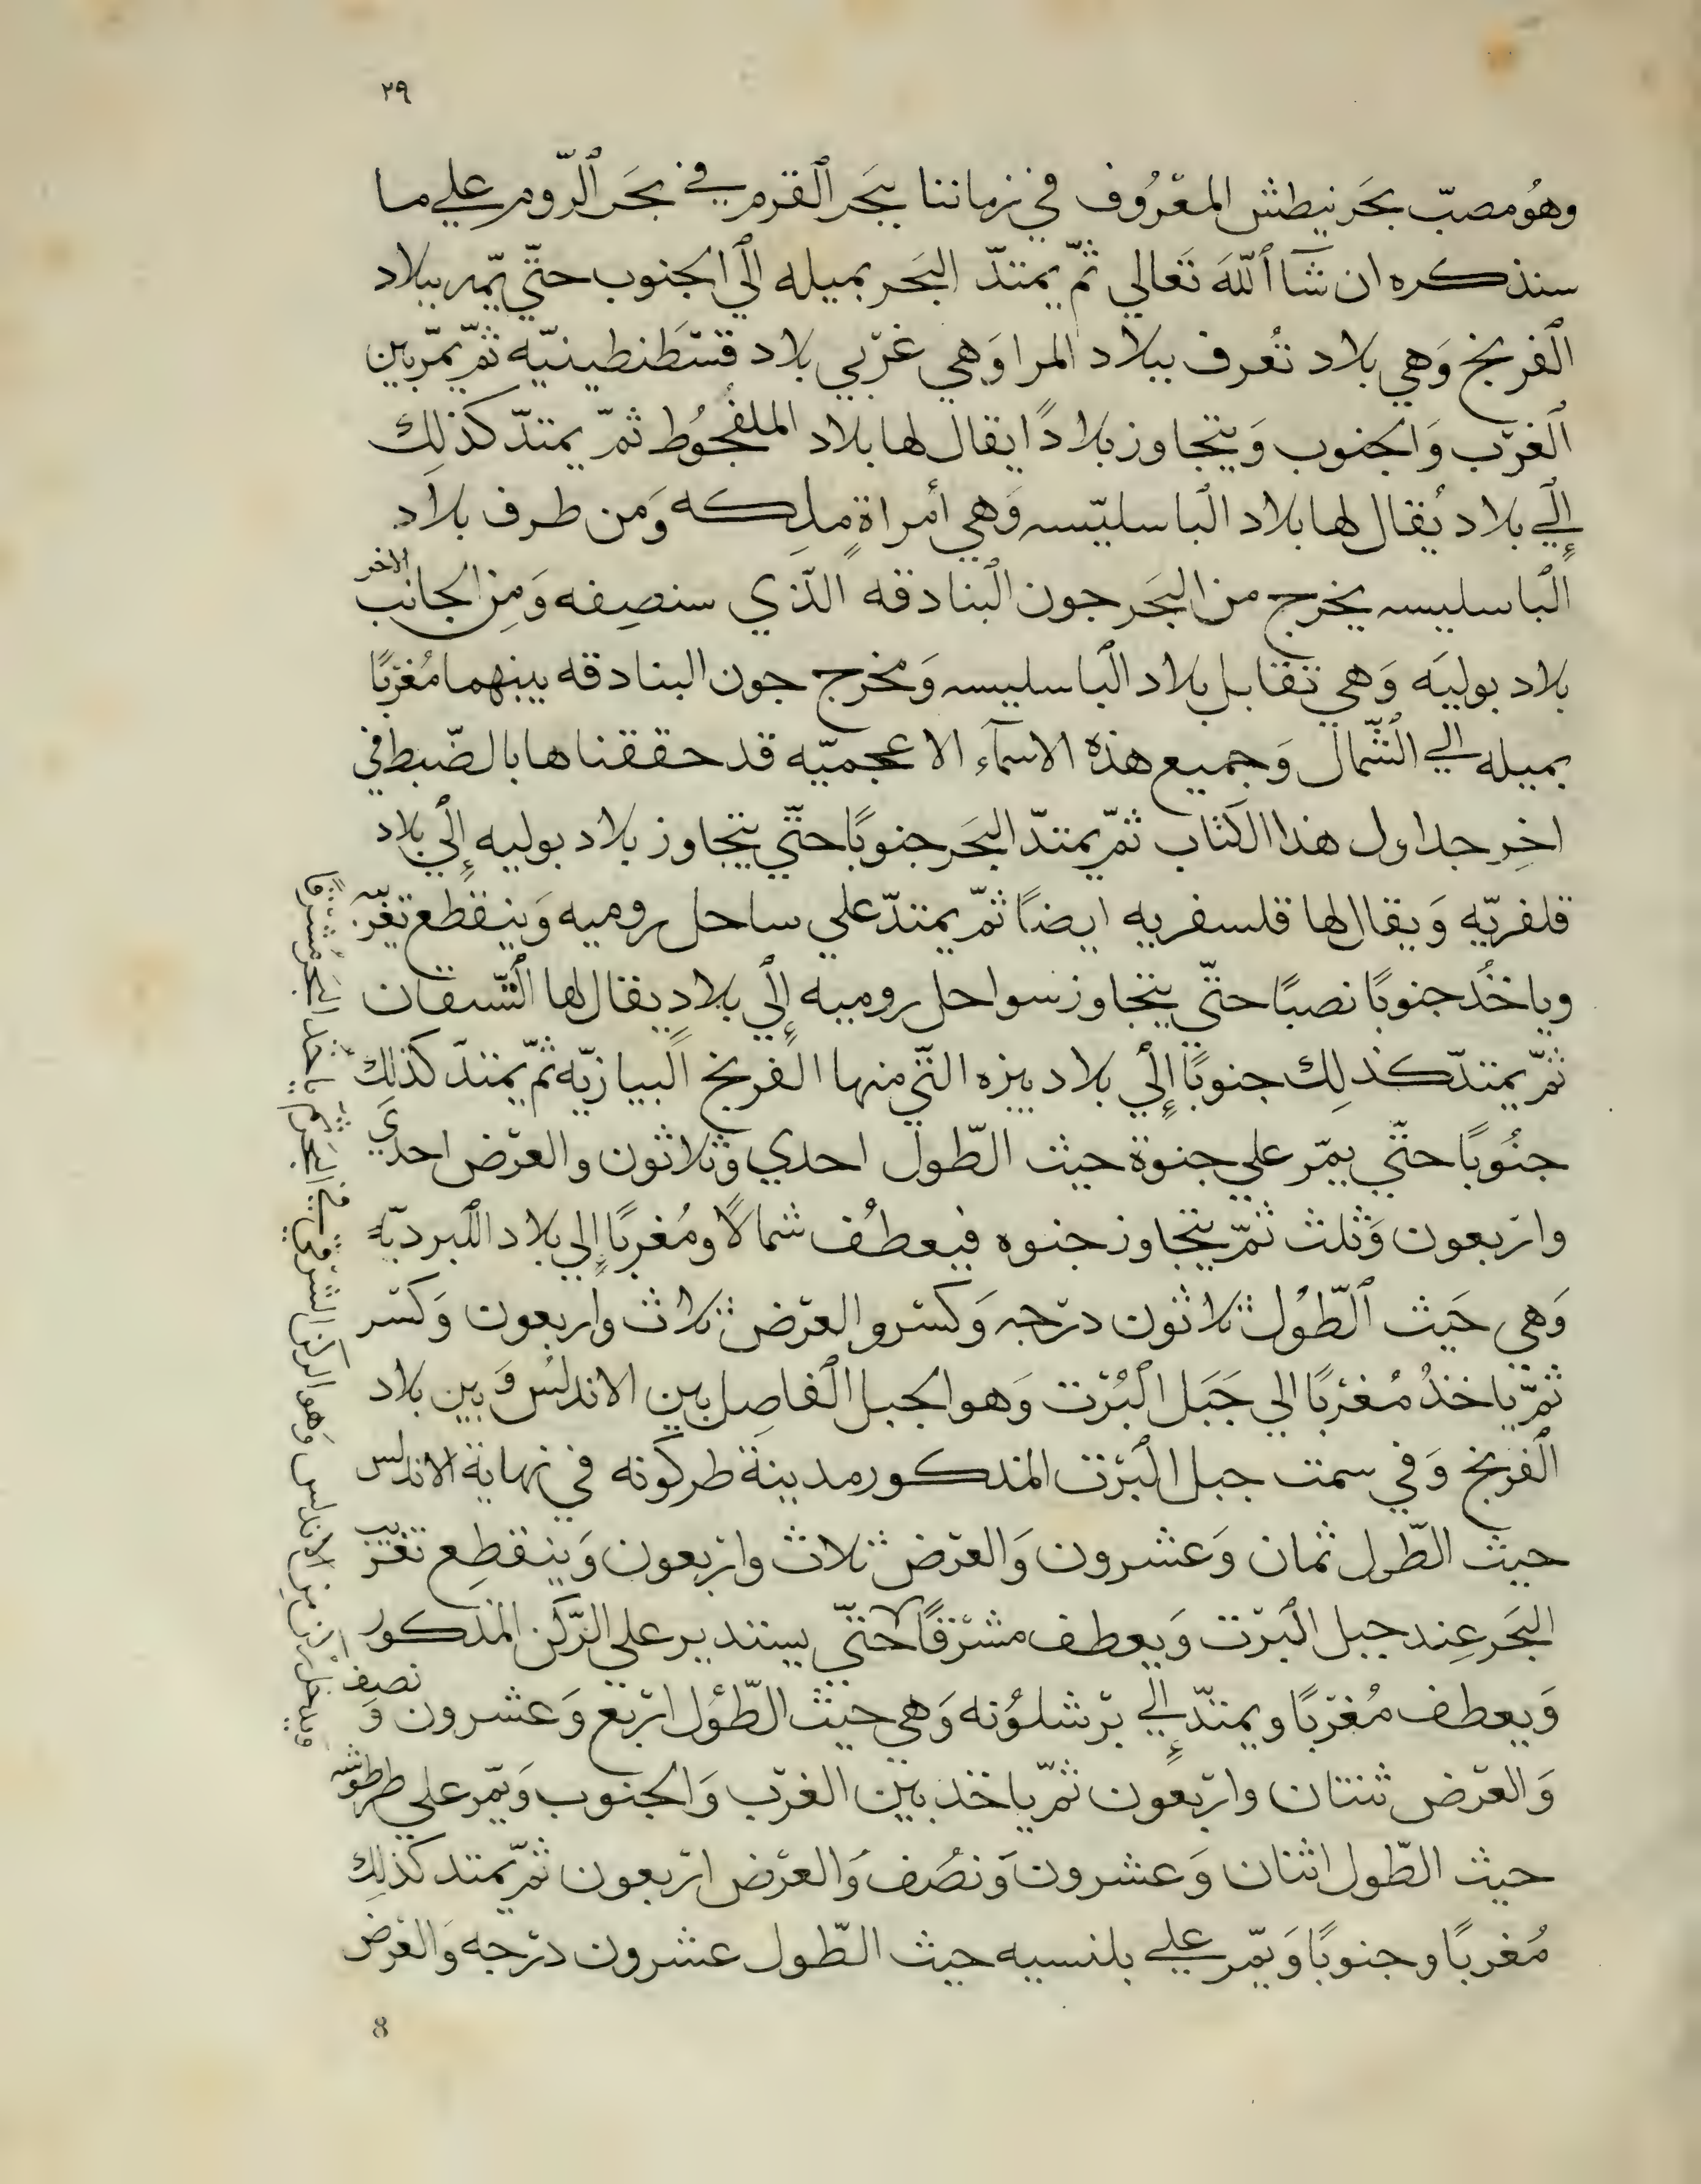 ٢٩
وهُو مصبّ بحَر نيطش المعْرُوف في زماننا ببَحر ٱلقرم في بحَر ٱلرّوم علي ما
سنذكره ان شآ ٱللّهَ تَعالي ثمّ يمتدّ البَحر بميله الٓي الجنوب حتّي يمّر ببلاد
ٱلفرنج وَهي بلاد تُعرف ببلاد المرا وَهي غرْبي بلاد قسْطَنطينيّه ثمّ يمّر بين
ٱلغرْب وَالجنوب وَيتجاوز بلادًا يقال لها بلاد الملفجُوط ثمّ يمتدّ كذلِك
إلٓي بلاد يُقال لها بلاد ٱلباسليّسه وَهي أمراةٍ ملِكه وَمن طرف بلاد
ٱلباسليسه يخرج من البَحر جون ٱلبنادقه الّذي سنصِفه وَمِن الجانب الاخر
بلاد بوليَه وَهي تقابل بلاد ٱلباسليسه وَمخرج جون البنادقه بينهما مُغربًا
بميله الي ٱلشّمال وَجميع هذه الاسمآء الاعجميّه قد حققناها بالضّبط في
اخِر جداول هذا الكتاب ثمّ يمتدّ البَحر جنوبًا حتّي يتجاوز بلاد بوليه إلٓي بلاد
قلفريّه وَيقال لها قلسفريه ايضًا ثمّ يمتدّ علي ساحل روميه وَينقطع تغرّبه
وياخُذ جنوبًا نصبًا حتّي يتجاوز سواحل روميه إلٓي بلادٍ يقال لها ٱلتّسقان
ثمّ يمتدّ كذلِك جنوبًا إلٓي بلاد بيزه التّي منها الفرنج ٱلبيازيّه ثمّ يمتدّ كذلك
جنُوبًا حتّي يمّر علي جنوة حيث الطّول احدي وَثلاثون والعرْض احديَ
وارْبعون وَثلث ثمّ يتجاوز جنوه فيعطُف شمالًا ومُغربًا إلي بلاد ٱللبرديّه
وَهي حَيث ٱلطّوُل ثلاثون درْجه وَكسْر والعرْض ثلاث واربعون وَكسْر
ثمّ ياخذُ مُغرْبًا الي جَبَل ٱلبُرْت وَهو الجبل ٱلفاصِل بين الاندلسُ وَبين بلاد
ٱلفرنج وَفي سمت جبل ٱلبرْت المذكور مدينة طركونه في نهاية الاندلس
حيث الطّول ثمان وَعشرون وَالعرْض ثلاث وارْبعون وَينقطِع تغريب
البَحر عِند جبل ٱلبرْت وَيعطف مشرْقًا حتّي يستدير علي الرّكن المذكور
وَيعطف مُغرْبًا ويمتدّ إلي برْشلوُنه وَهي حيث الطّوْل ارْبع وَعشرون وَ نصف
وَالعرْض ثنتان وارْبعون ثمّ ياخذ بيْن الغرْب وَالجنوب وَيمّر علي طرطوشه
حيث الطّول اثنان وَعشرون وَنصُف وَالعرْض ارْبعون ثمّ يمتد كذلِك
مُغربًا وجنوبًا وَيمّر علي بلنسيه حيث الطّول عشرون درْجه وَالعرْض
ويدخل ركن من الاندلس وَهو الركن الشرقي في البَحر ثم ياخُذ البَحر مُشرقًا
8